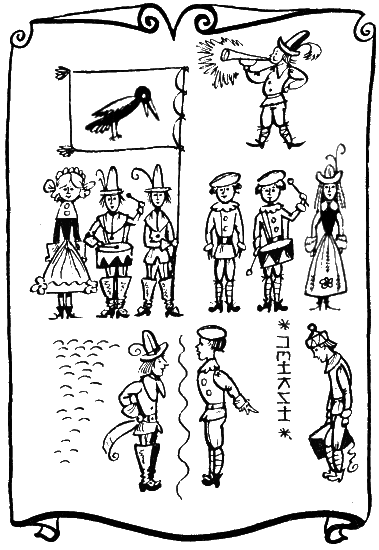 * ПЕНКИН *